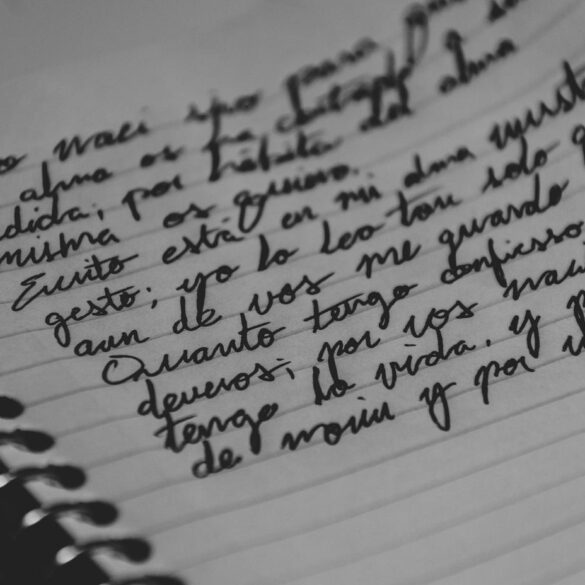 o naci sino para qu
alma os ha cortado a su
dida; por hábito del alma
misma os quiero.
Escrito está en mi alma vuest
gesto; yo lo leo tan solo q
aun de vos me guardo
Quanto tengo confieso
deveros; por vos naci
tengo la vida, y p
de morir y por v